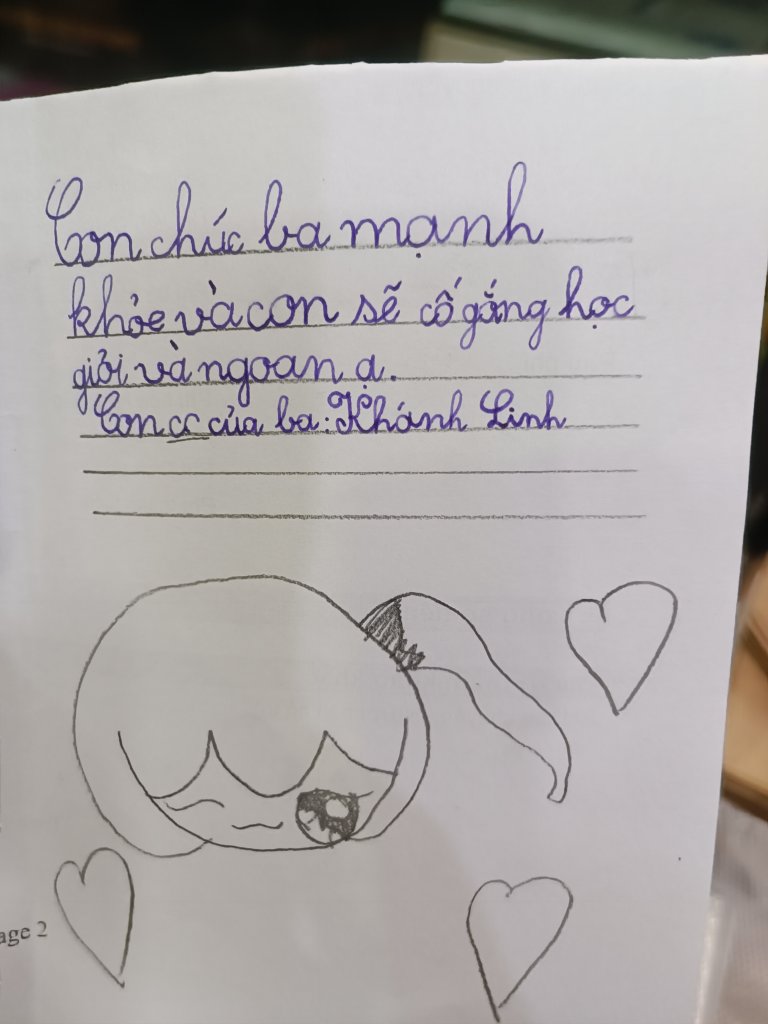 Con chúc ba mạnh
khỏe và con sẽ cố gắng học
giỏi và ngoan ạ.
Con cc của ba: Khánh Linh
age 2